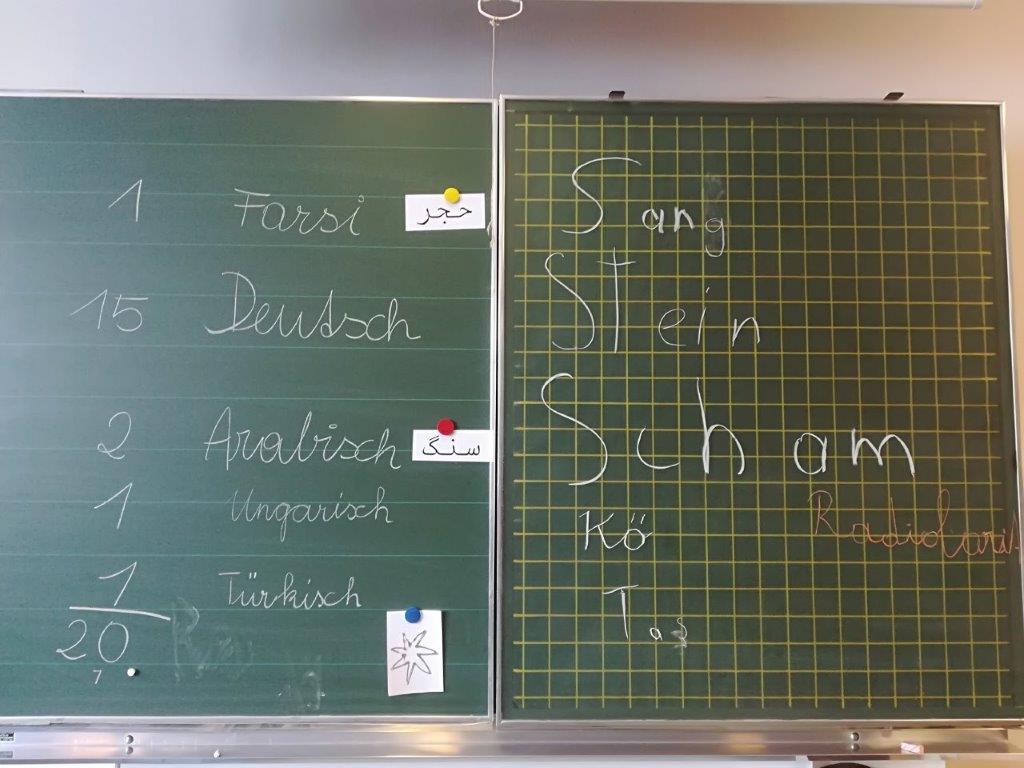 1 Farsi حجر
15 Deutsch
2 Arabisch سنگ
1 Ungarisch
1 Türkisch
20
7
Sang
STein
Scham
Kő
Taş